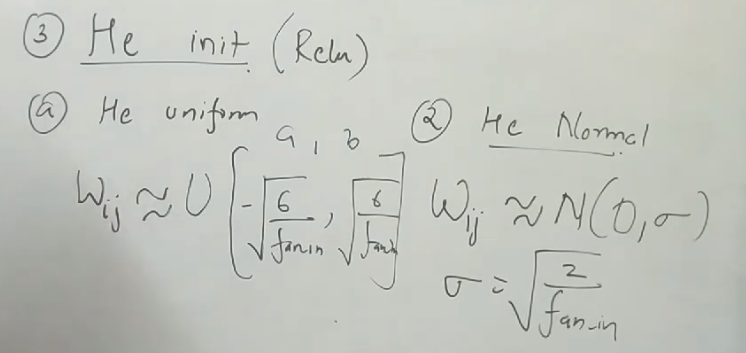 ③ He init (Relu)
ⓐ He uniform
a, b
Wij ≈ U [-√(6/fan-in), √(6/fan-in)]
② He Normal
Wij ≈ N(0,σ)
σ = √(2/fan-in)